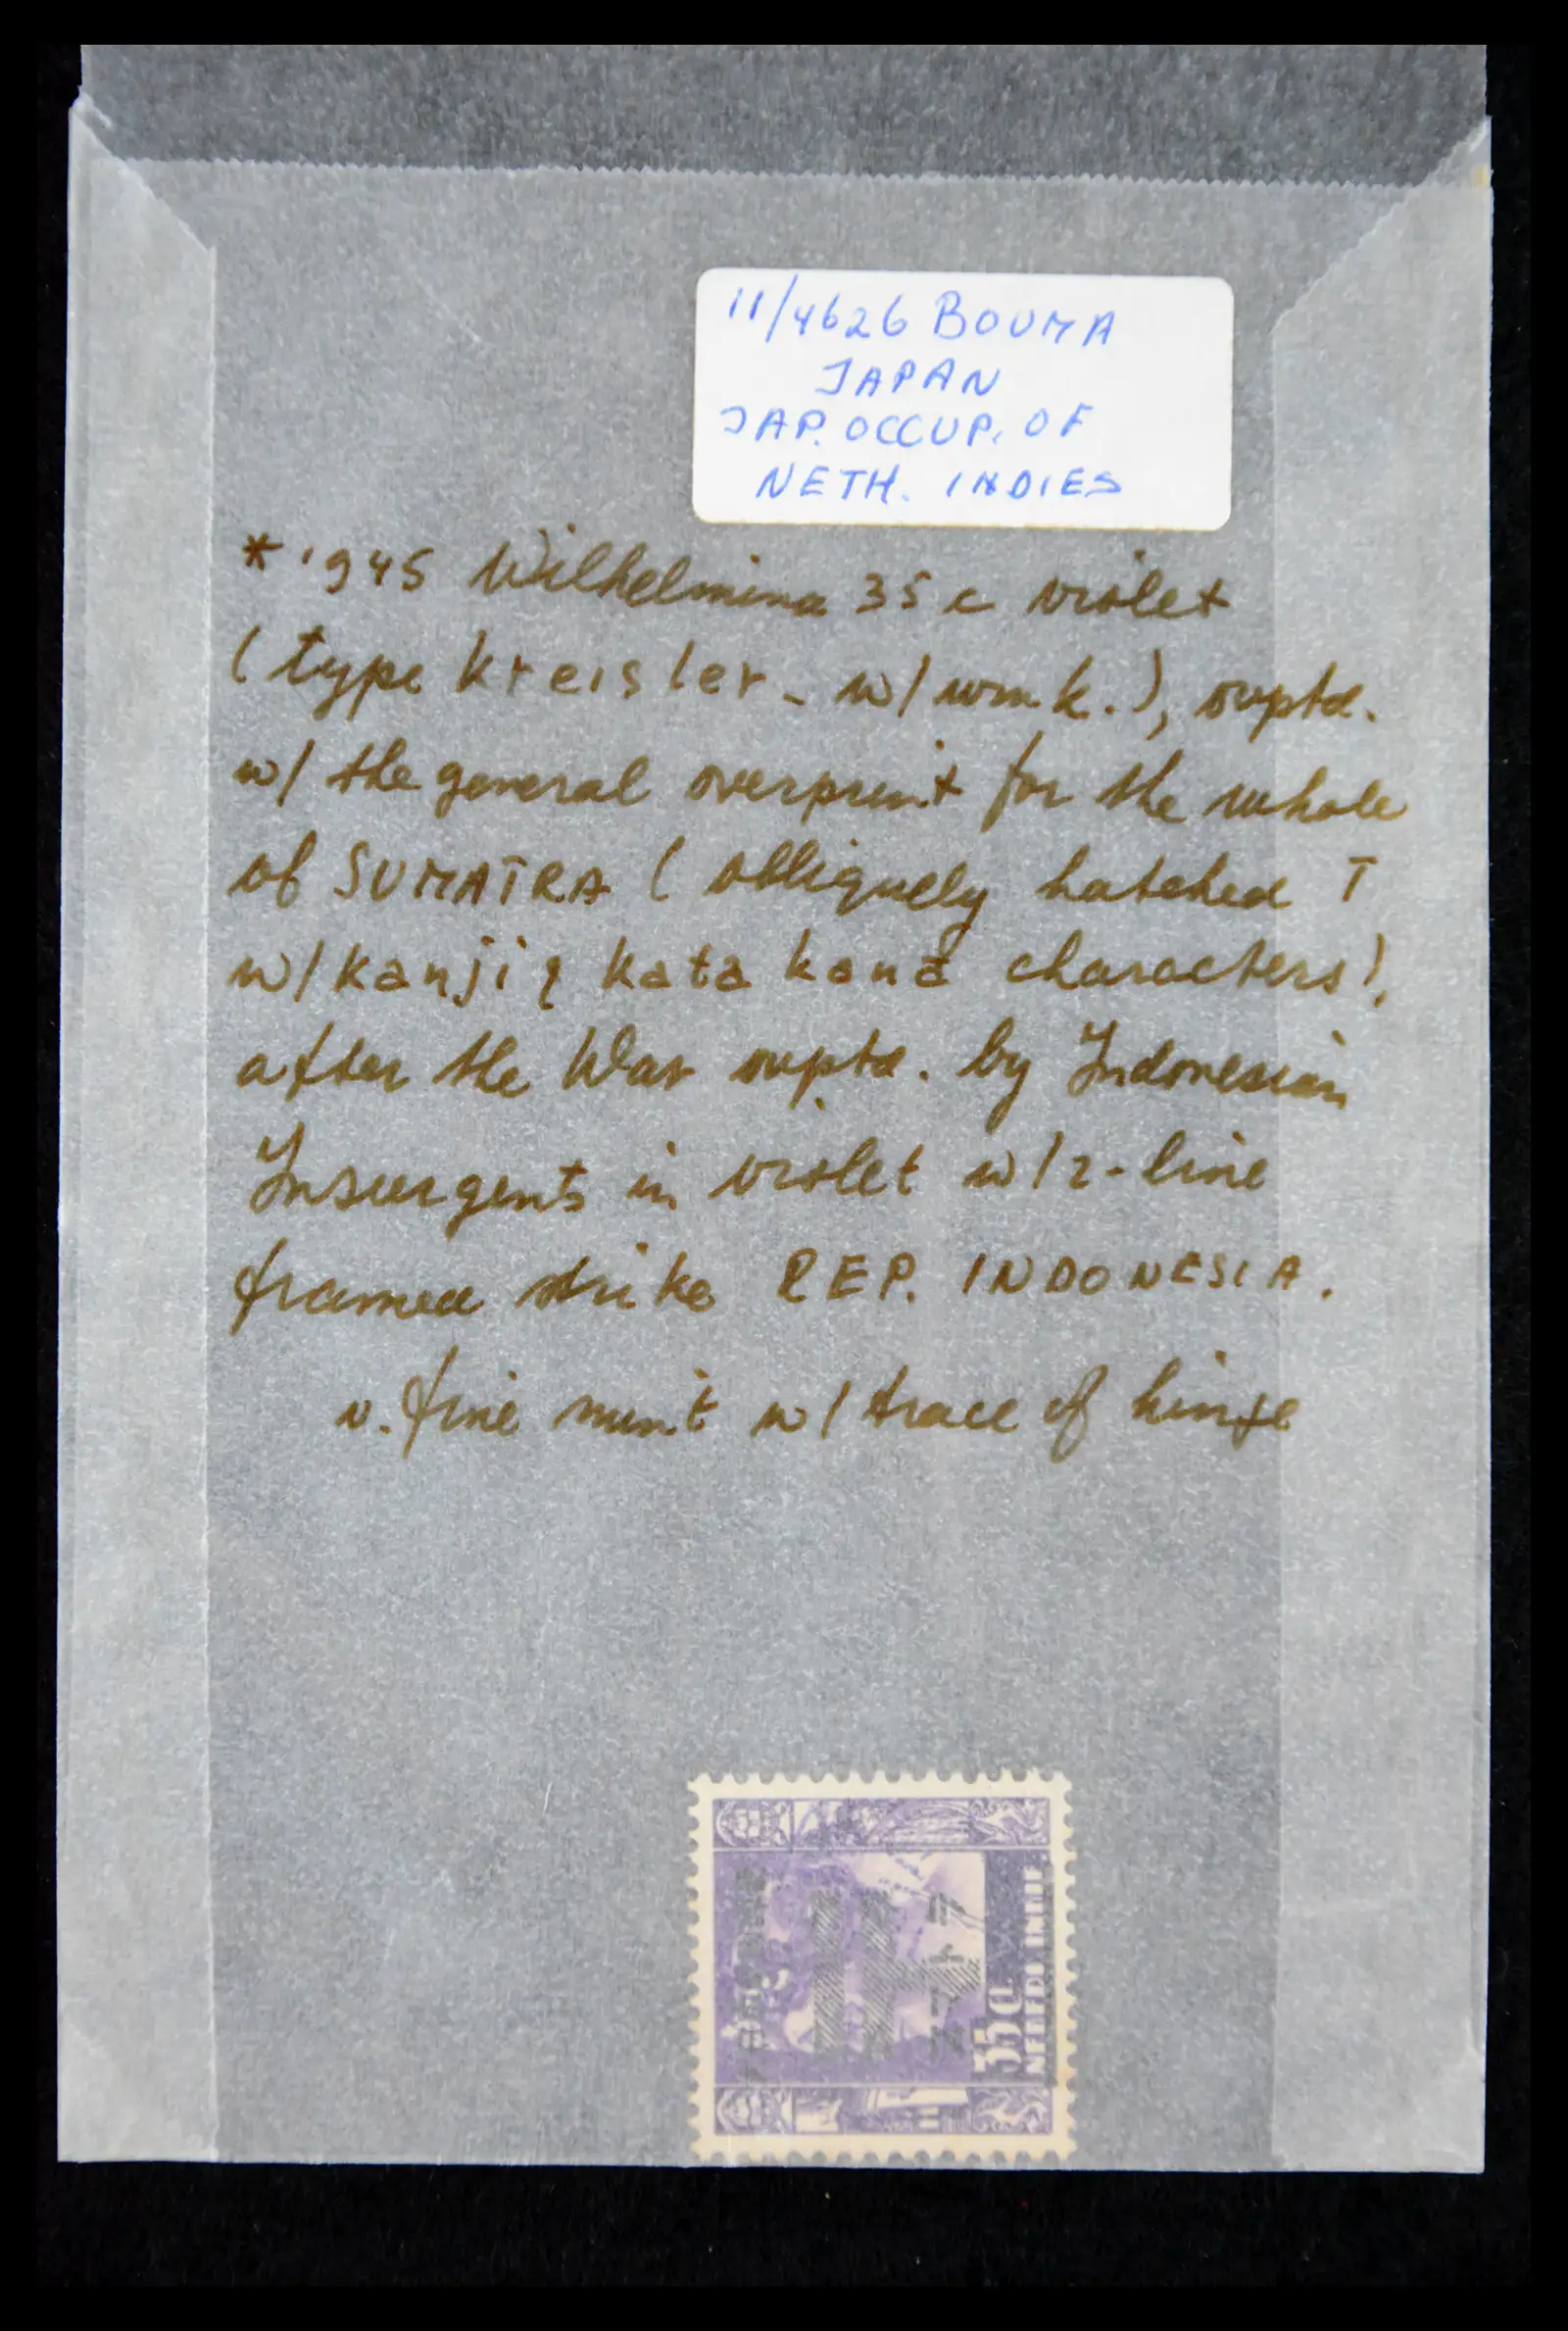 11/4626 BOUMA
JAPAN
JAP. OCCUP. OF
NETH. INDIES
* 1945 Wilhelmina 35 c violet
(type Kreisler - w/ wmk.), ovptd.
w/ the general overprint for the whole
of SUMATRA ( obliquely hatched T
w/ Kanji & Kata kana characters),
after the War ovptd. by Indonesian
Insurgents in violet w/ 2-line
framed strike REP. INDONESIA.
v. fine mint w/ trace of hinge
35 C.
NEDERL. INDIE